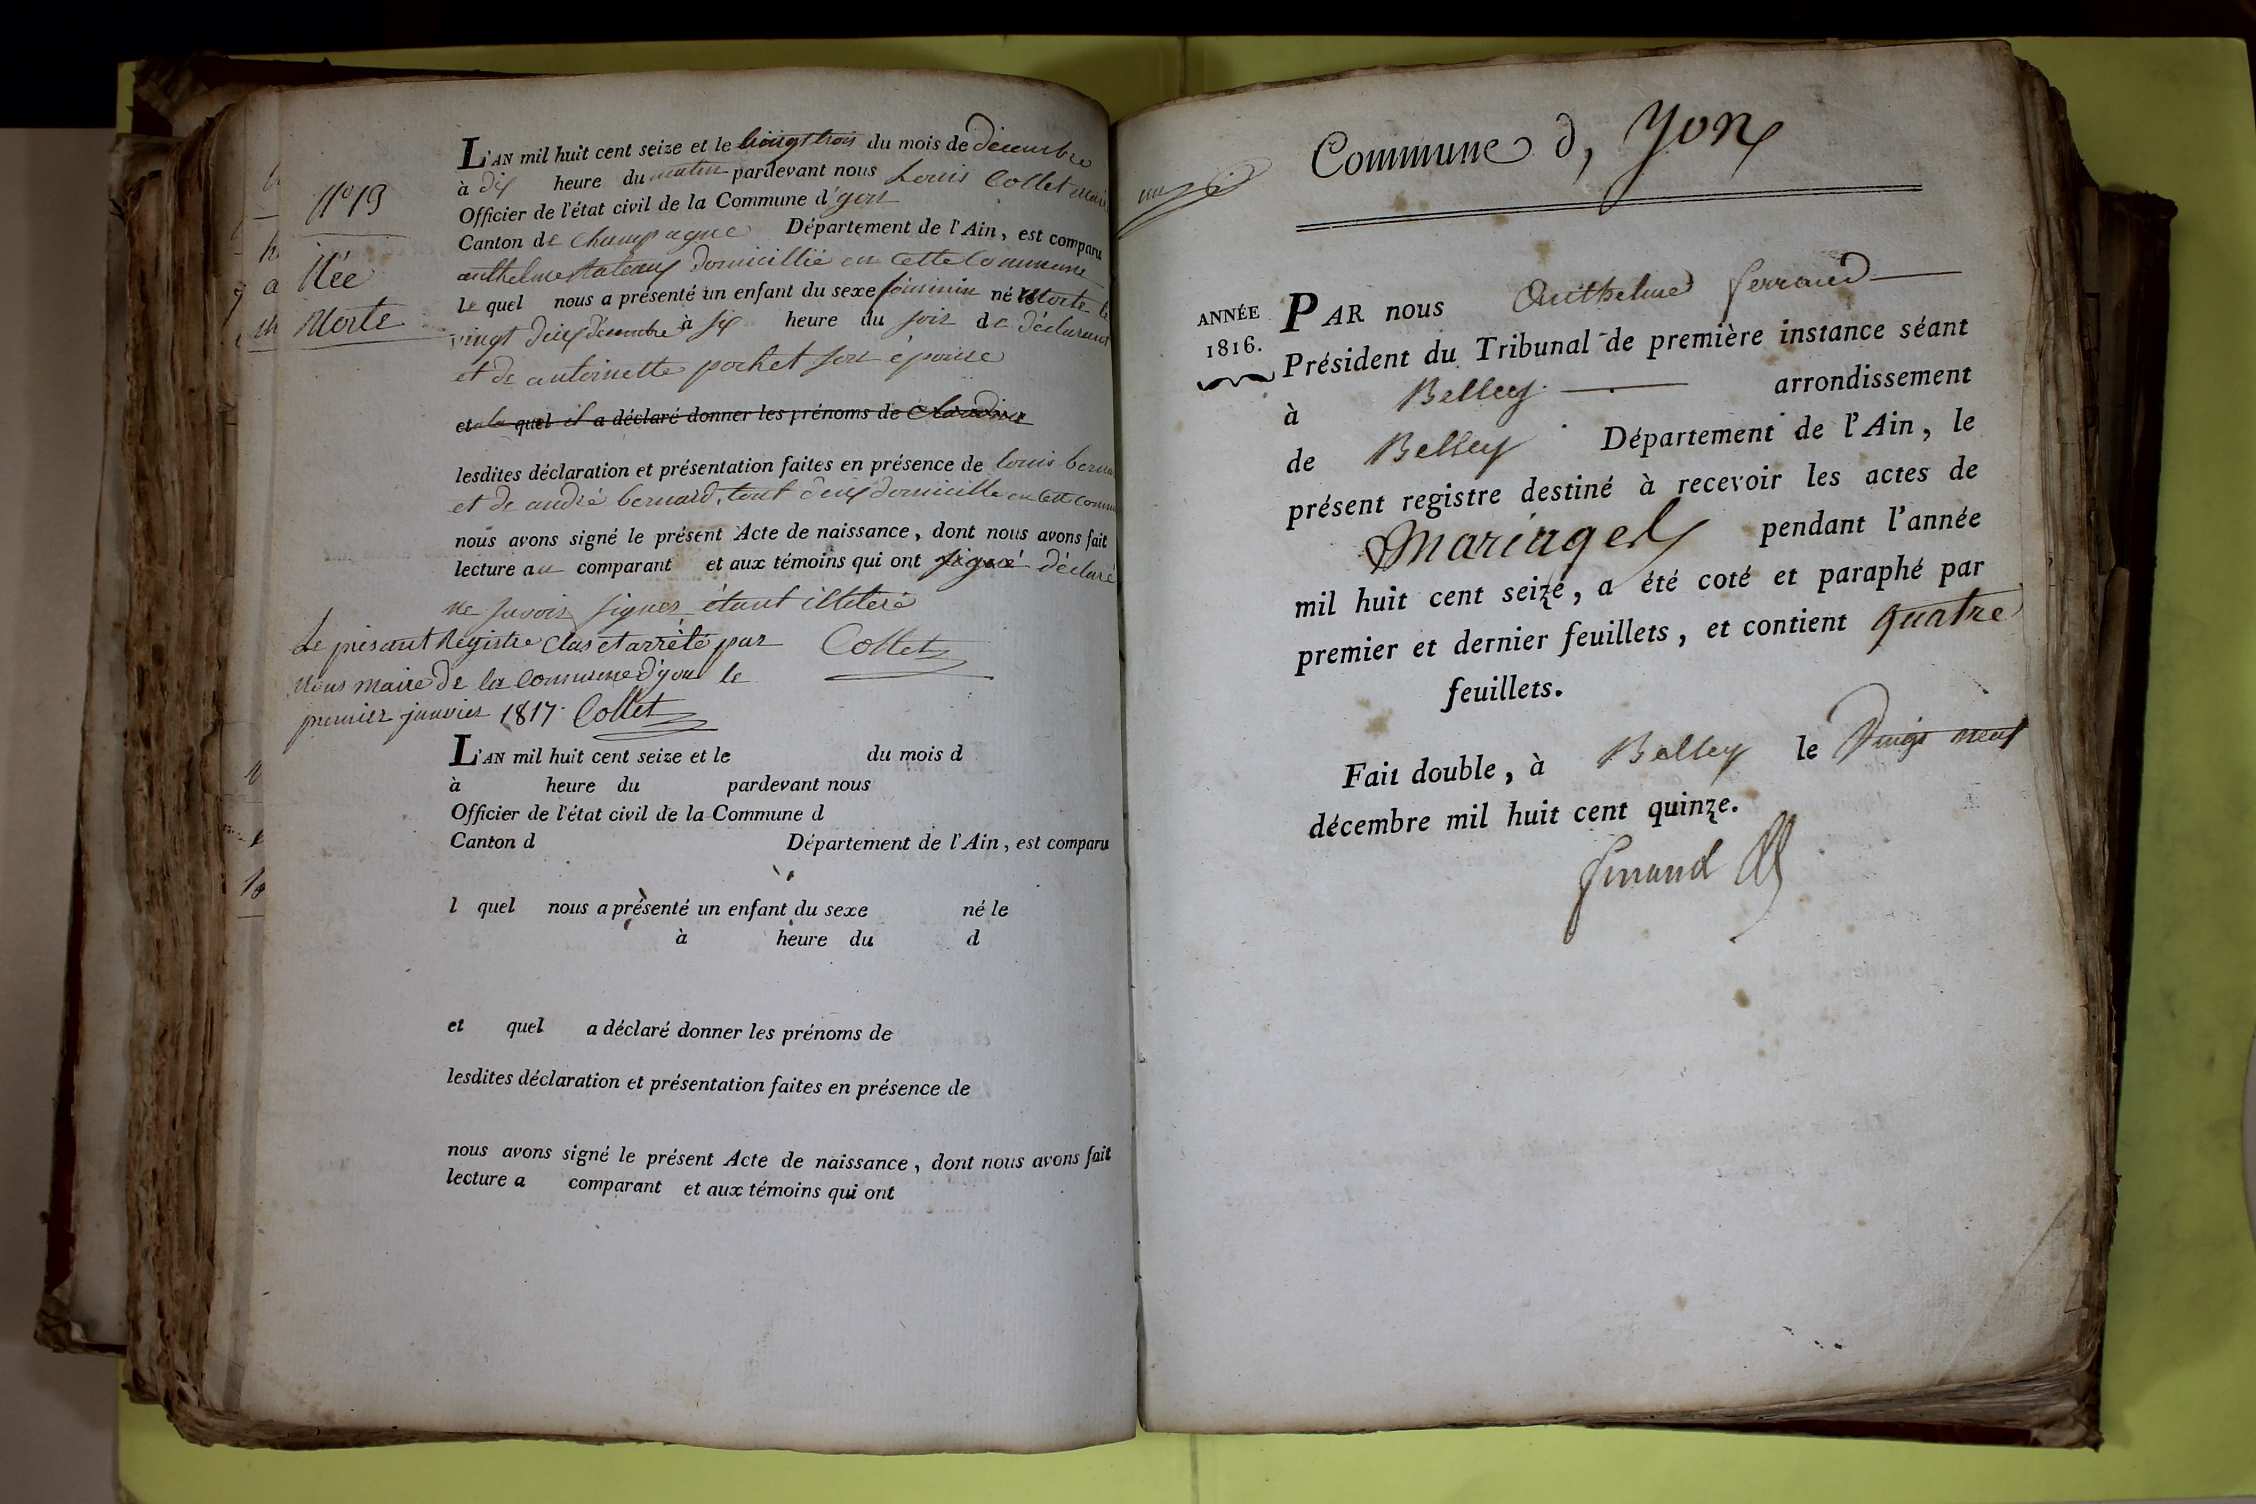 N° 19
Née
Morte
L'AN mil huit cent seize et le vingt trois du mois de décembre
à dix heure du matin pardevant nous Louis Collet maire
Officier de l'état civil de la Commune d'yon
Canton de Champagne Département de l'Ain, est comparu
anthelme domicillié en cette Commune
le quel nous a présenté un enfant du sexe féminin né Morte le
vingt deux décembre à six heure du soir de déclarant
et de antoinette pochet son épouse
et la quel il a déclaré donner les prénoms de Claudine
lesdites déclaration et présentation faites en présence de louis bernard
et de andré bernard, tout deux domicillé en cette commune
nous avons signé le présent Acte de naissance, dont nous avons fait
lecture au comparant et aux témoins qui ont signé déclaré
ne savoir signer étant illiteré
Collet
Le présent Registre clas et arrêté par
nous maire de la commune d'yon le
premier janvier 1817. Collet
L'AN mil huit cent seize et le du mois d
à heure du pardevant nous
Officier de l'état civil de la Commune d
Canton d Département de l'Ain, est comparu
l quel nous a présenté un enfant du sexe né le
à heure du d
et quel a déclaré donner les prénoms de
lesdites déclaration et présentation faites en présence de
nous avons signé le présent Acte de naissance, dont nous avons fait
lecture a comparant et aux témoins qui ont
Commune d, Yon
ANNÉE
1816.
PAR nous Anthelme ferrand
Président du Tribunal de première instance séant
à Belley arrondissement
de Belley Département de l'Ain, le
présent registre destiné à recevoir les actes de
Mariages pendant l'année
mil huit cent seize, a été coté et paraphé par
premier et dernier feuillets, et contient quatre
feuillets.
Fait double, à Belley le Vingt neuf
décembre mil huit cent quinze.
ferrand